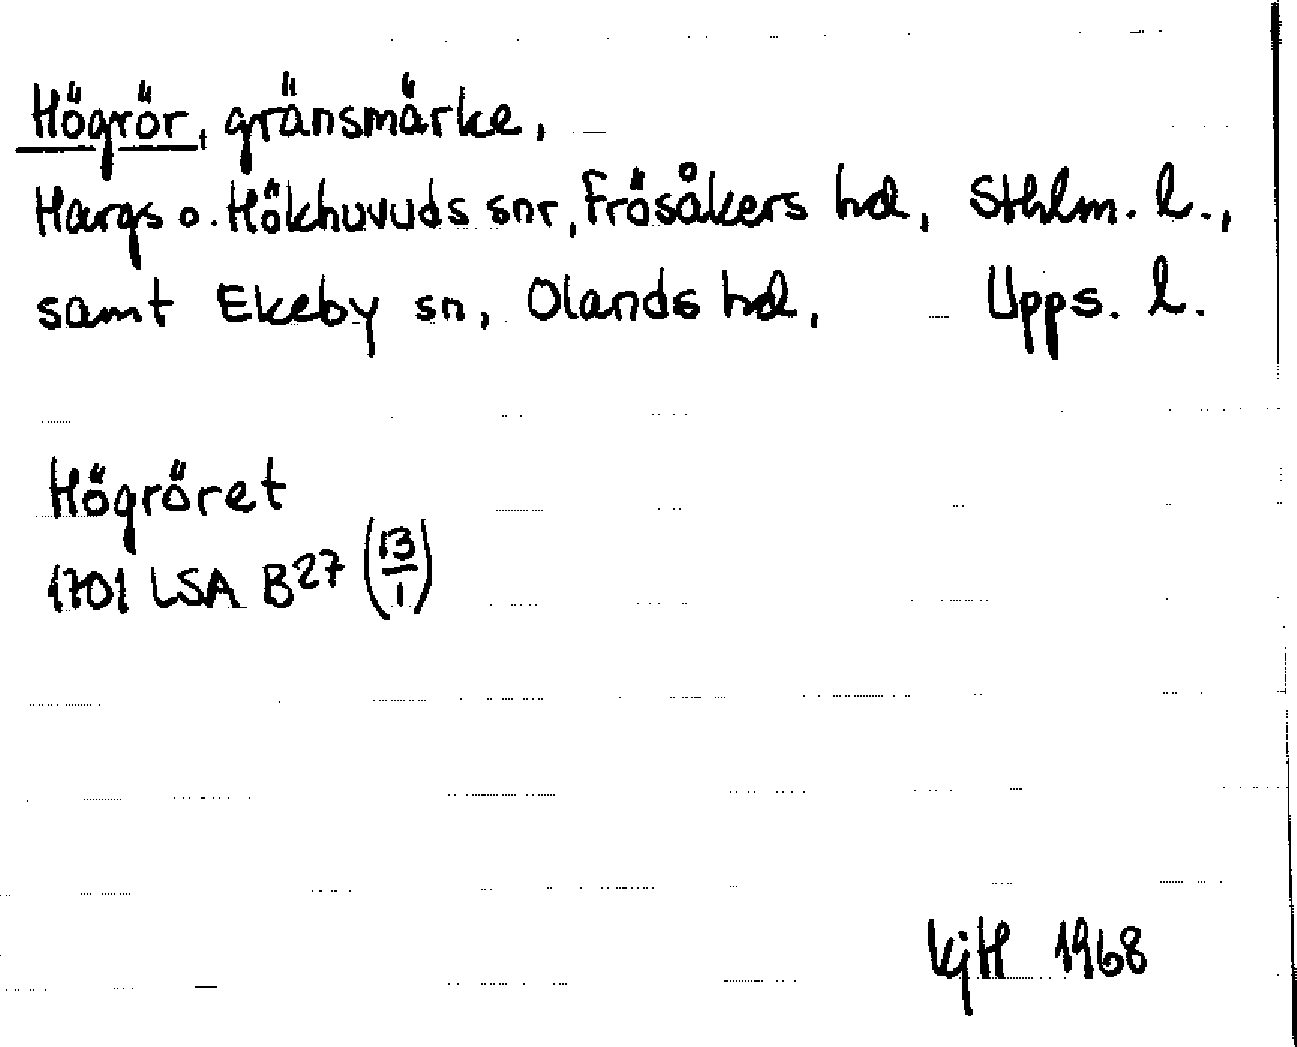 Högrör, gränsmärke,
Hargs o. Hökhuvuds snr, Frösåkers hd, Sthlm. l.,
samt Ekeby sn, Olands hd, Upps. l.
Högröret
1701 LSA B27 (13/1)
KjH 1968